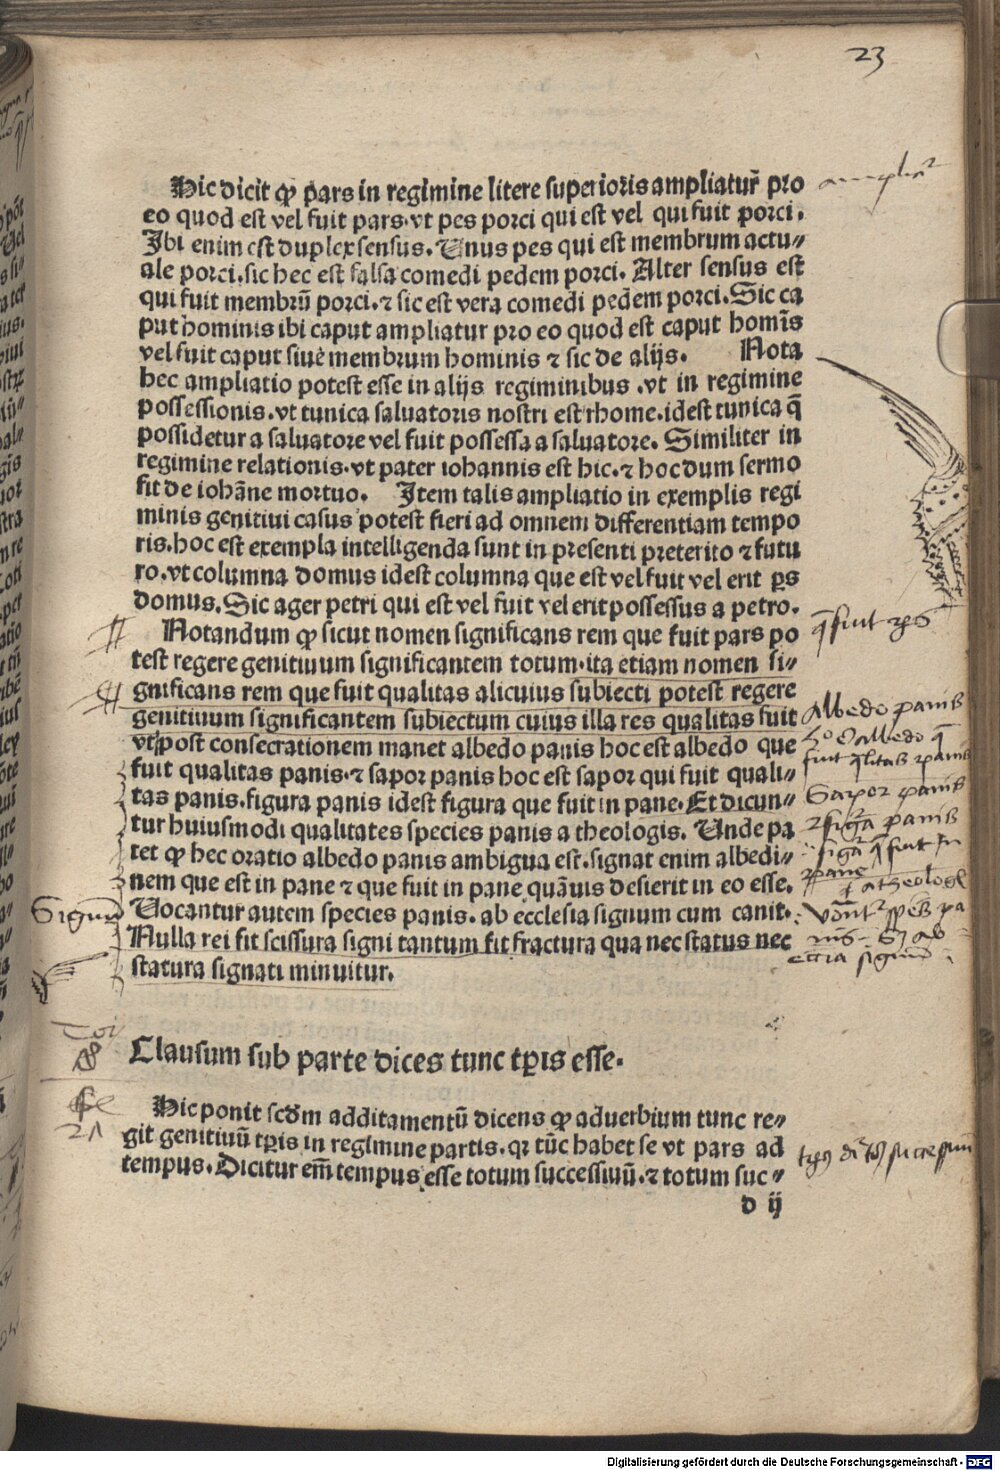 23
Hic dicit ꝙ pars in regimine litere superioris ampliatur̃ pro
eo quod est vel fuit pars.vt pes porci qui est vel qui fuit porci.
Ibi enim est duplex sensus. Unus pes qui est membrum actu⸗
ale porci.sic hec est falsa comedi pedem porci. Alter sensus est
qui fuit membrũ porci.⁊ sic est vera comedi pedem porci.Sic ca
put hominis ibi caput ampliatur pro eo quod est caput homĩs
vel fuit caput siue membrum hominis ⁊ sic de alijs. Nota
hec ampliatio potest esse in alijs regiminibus .vt in regimine
possessionis.vt tunica saluatoris nostri est rhome.idest tunica q̃
possidetur a saluatore vel fuit possessa a saluatore. Similiter in
regimine relationis.vt pater iohannis est hic.⁊ hoc dum sermo
fit de iohãne mortuo. Item talis ampliatio in exemplis regi
minis genitiui casus potest fieri ad omnem differentiam tempo
ris.hoc est exempla intelligenda sunt in presenti preterito ⁊ futu
ro.vt columna domus idest columna que est vel fuit vel erit ꝑs
domus.Sic ager petri qui est vel fuit vel erit possessus a petro.
Notandum ꝙ sicut nomen significans rem que fuit pars po
test regere genitiuum significantem totum.ita etiam nomen si⸗
gnificans rem que fuit qualitas alicuius subiecti potest regere
genitiuum significantem subiectum cuius illa res qualitas fuit
vt post consecrationem manet albedo panis hoc est albedo que
fuit qualitas panis.⁊ sapor panis hoc est sapor qui fuit quali⸗
tas panis.figura panis idest figura que fuit in pane.Et dicun⸗
tur huiusmodi qualitates species panis a theologis. Unde pa
tet ꝙ hec oratio albedo panis ambigua est.signat enim albedi⸗
nem que est in pane ⁊ que fuit in pane quãuis desierit in eo esse.
Uocantur autem species panis. ab ecclesia signum cum canit.
Nulla rei fit scissura signi tantum fit fractura qua nec status nec
statura signati minuitur.
Albedo panis
Sapor panis
figura panis
a theologis
Clausum sub parte dices tunc tꝑis esse.
Hic ponit scd̃m additamentũ dicens ꝙ aduerbium tunc re⸗
git genitiuũ tꝑis in regimine partis.qꝛ tũc habet se vt pars ad
tempus. Dicitur em̃ tempus esse totum successiuũ.⁊ totum suc⸗
d ij
Digitalisierung gefördert durch die Deutsche Forschungsgemeinschaft - DFG